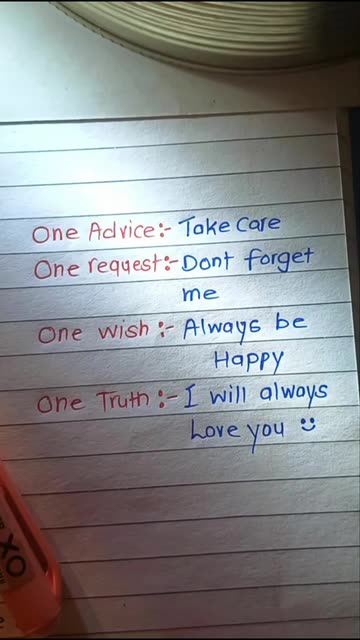 One Advice:- Take Care
One request:- Dont forget
me
One wish :- Always be
Happy
One Truth :- I will always
Love you